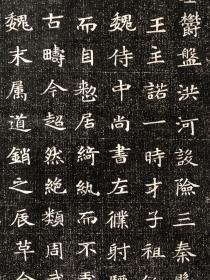 欝盤洪河設險三秦
王主諾一時才子祖
魏侍中尚書左僕射
而自懃居綺紈而不
古疇今超然絶類周
魏末屬道銷之辰草